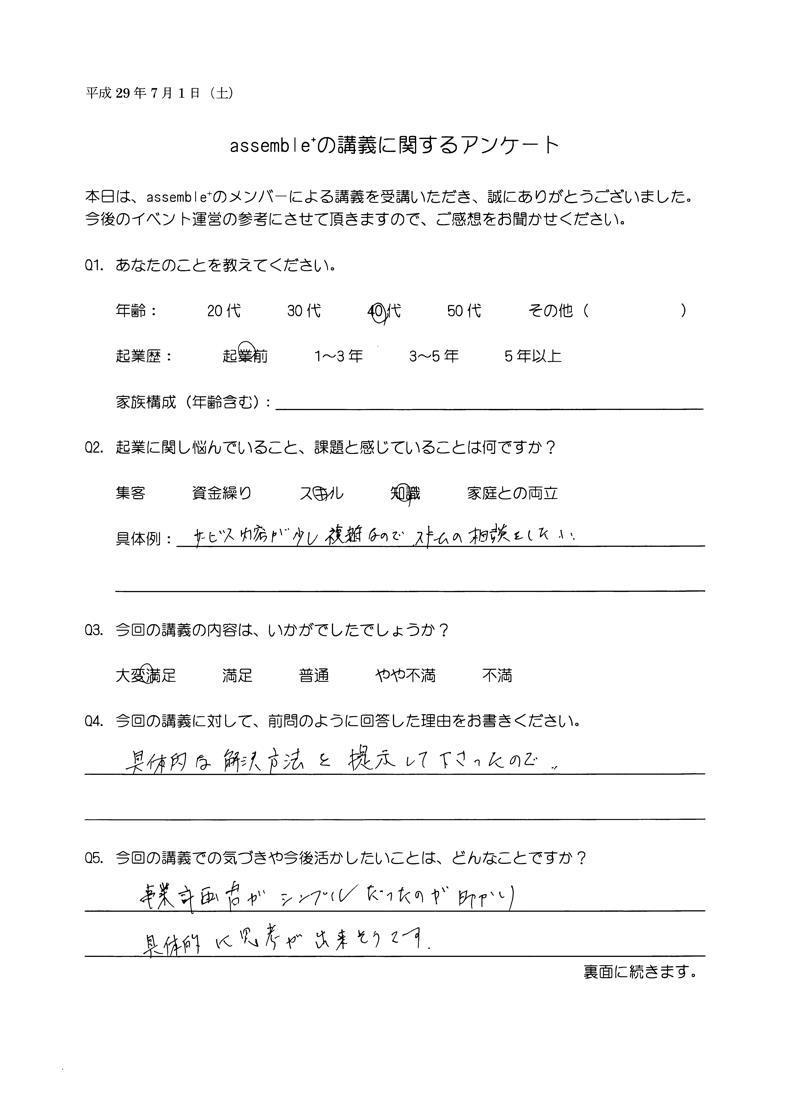 平成29年7月1日（土）
assemble⁺の講義に関するアンケート
本日は、assemble⁺のメンバーによる講義を受講いただき、誠にありがとうございました。
今後のイベント運営の参考にさせて頂きますので、ご感想をお聞かせください。
Q1. あなたのことを教えてください。
年齢： 20代 30代 40代 50代 その他（ ）
起業歴： 起業前 1～3年 3～5年 5年以上
家族構成（年齢含む）：
Q2. 起業に関し悩んでいること、課題と感じていることは何ですか？
集客 資金繰り スキル 知識 家庭との両立
具体例： サービス内容が少し複雑なので スキームの相談をしたい.
Q3. 今回の講義の内容は、いかがでしたでしょうか？
大変満足 満足 普通 やや不満 不満
Q4. 今回の講義に対して、前問のように回答した理由をお書きください。
具体的な解決方法を提示して下さったので..
Q5. 今回の講義での気づきや今後活かしたいことは、どんなことですか？
事業計画書がシンプルだったのが助かり
具体的に思考が出来そうです.
裏面に続きます。